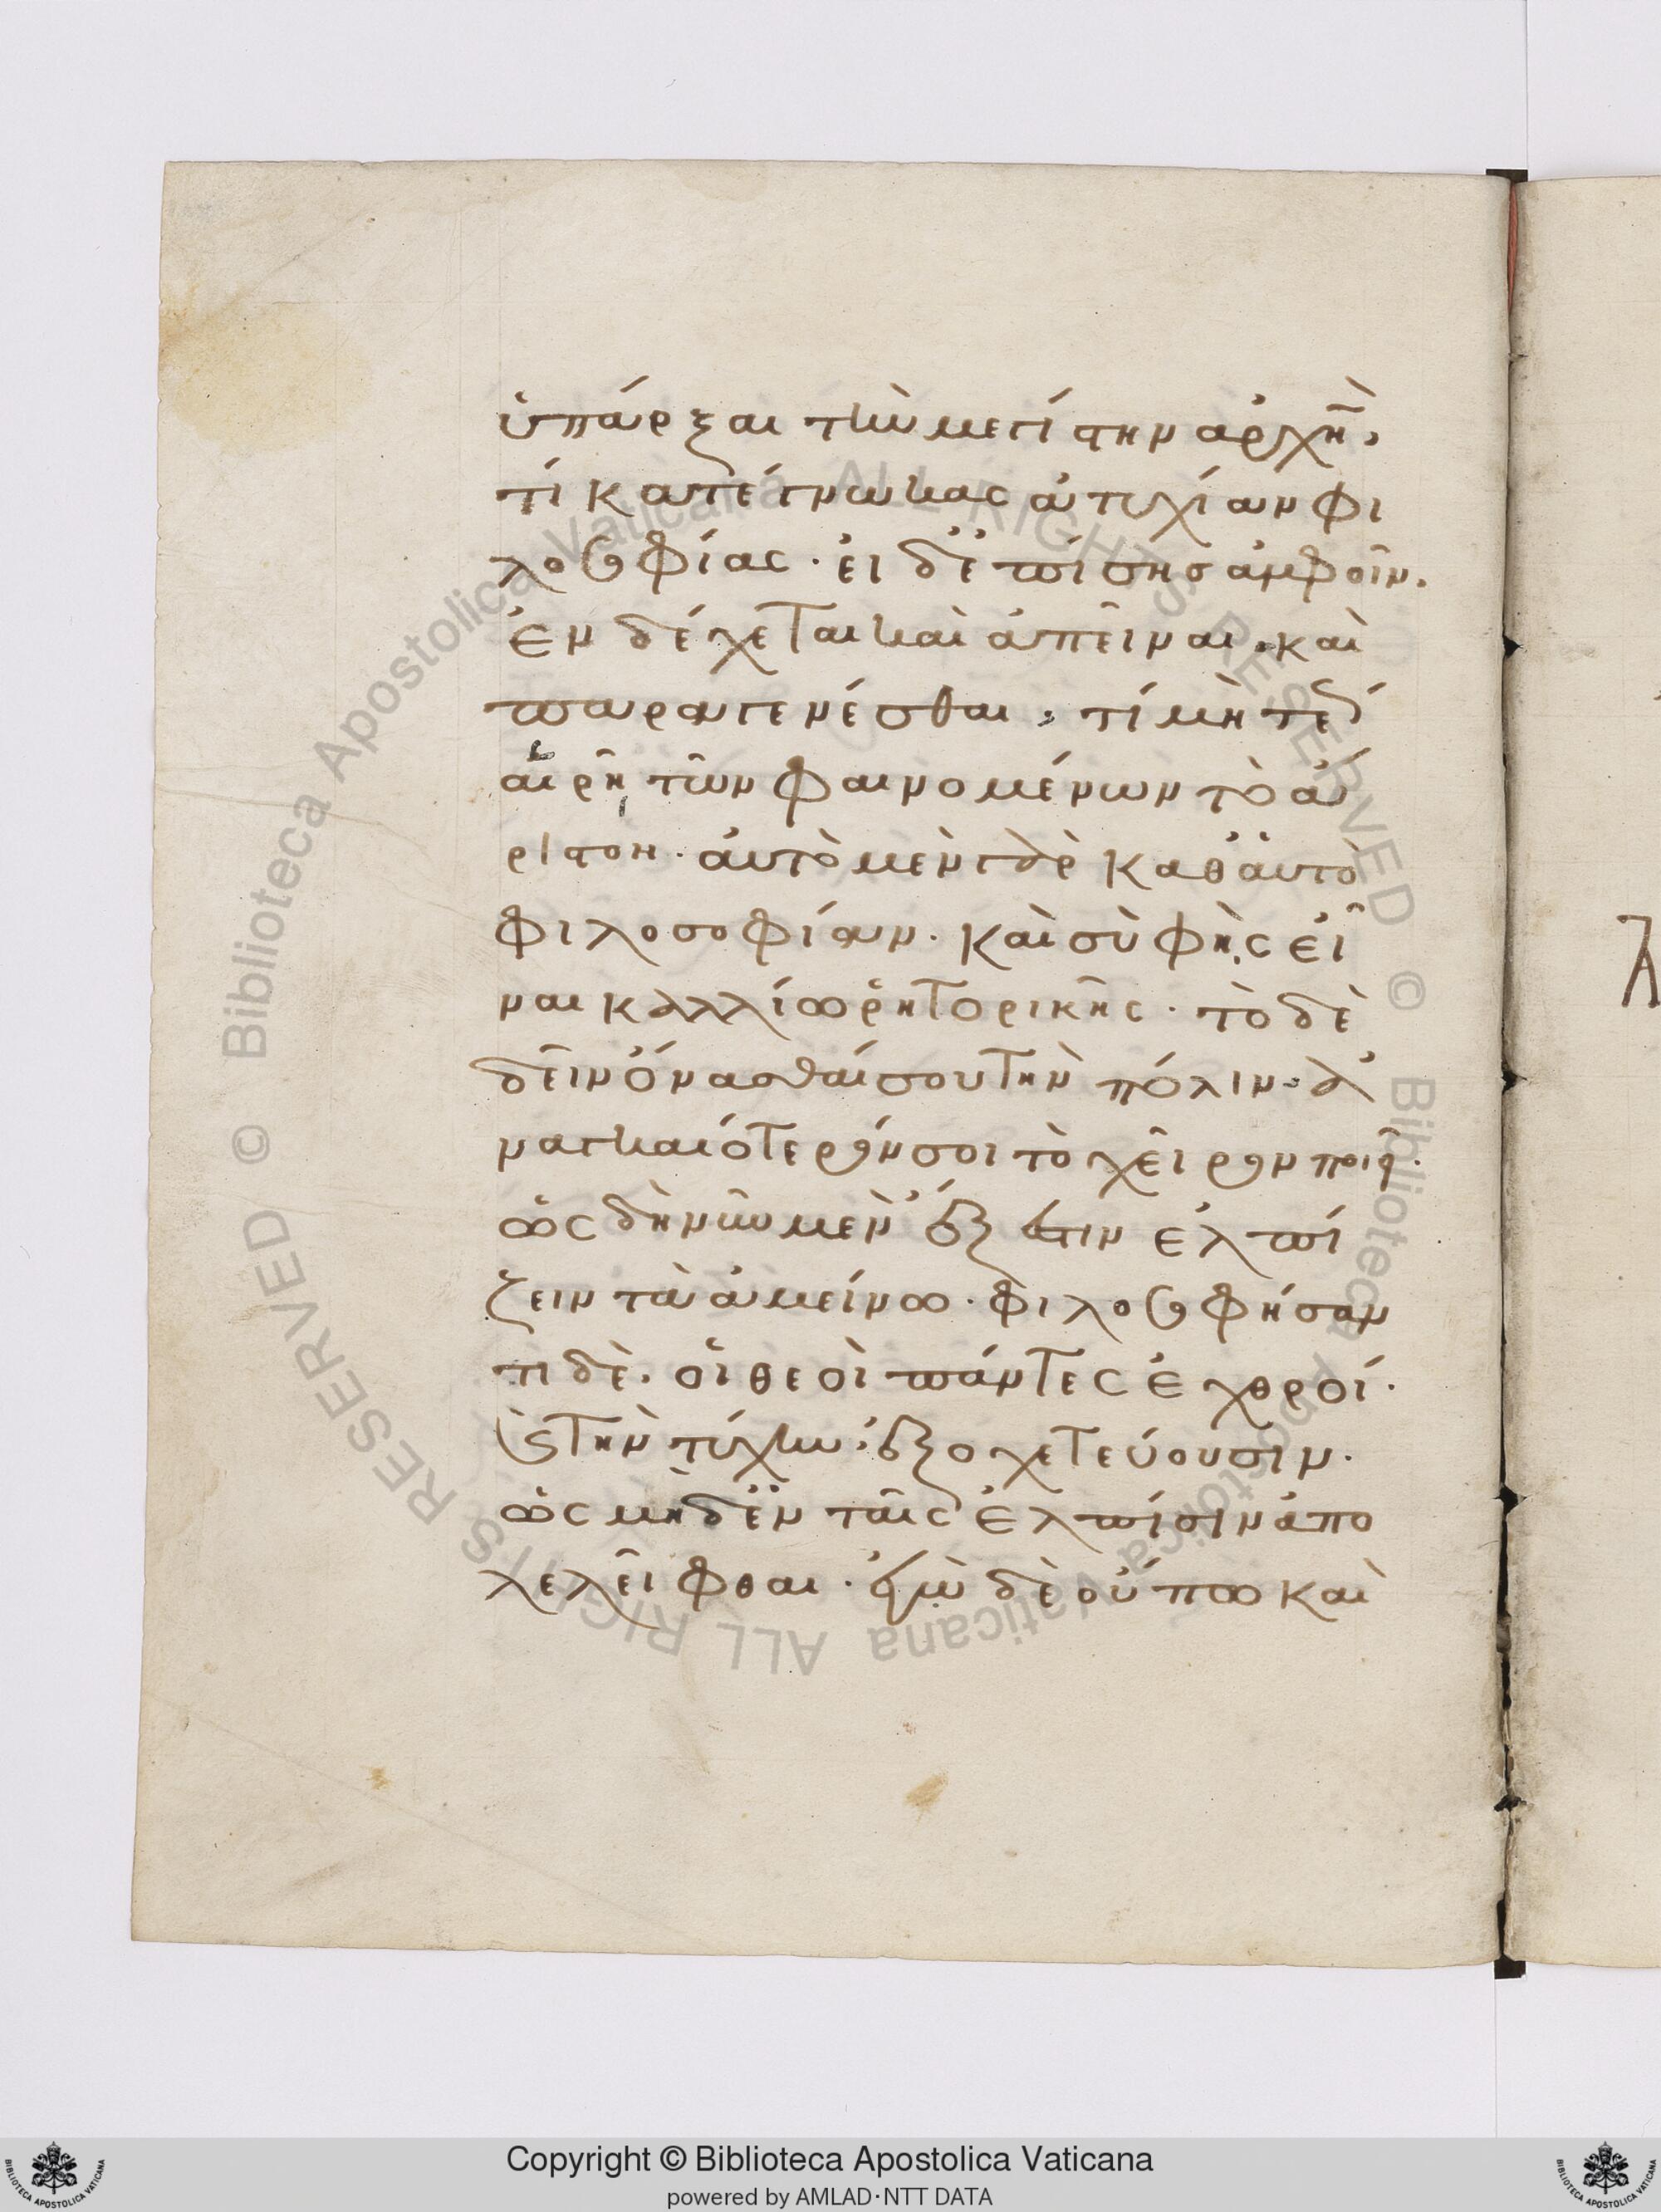 ὑπάρξαι τὴν μεγίστην ἀρχήν,
τί κατέγνωκας ἀτυχίαν φι
λοσοφίας· εἰ δ' ἐπίσης ἀμφοῖν.
ἐνδέχεται καὶ ἀπεῖναι. καὶ
παραγενέσθαι, τί μή τε δ'
αἱρῇ τῶν φαινομένων τὸ ἄ
ριστον· αὐτὸ μὲν γὰρ καθ' αὑτὸ
φιλοσοφίαν· καὶ σὺ φῂς εἶ
ναι καλλίω ῥητορικῆς· τὸ δὲ
δεῖν ὄνασθαί σου τὴν πόλιν. ἀ
ναγκαιότερόν σοι τὸ χεῖρον ποιεῖ·
ὡς δὴ νῦν μὲν ἔξεστιν ἐλπί
ζειν τὰ ἀμείνω· φιλοσοφήσαν
τι δὲ. οἱ θεοὶ πάντες ἐχθροί·
καὶ τὴν τύχην ἐξοχετεύουσιν·
ὡς μηδὲν ταῖς ἐλπίσιν ἀπο
λελεῖφθαι· ἐγὼ δὲ οὔπω καὶ
Copyright © Biblioteca Apostolica Vaticana
powered by AMLAD·NTT DATA
© Biblioteca Apostolica Vaticana ALL RIGHTS RESERVED
© Biblioteca Apostolica Vaticana ALL RIGHTS RESERVED